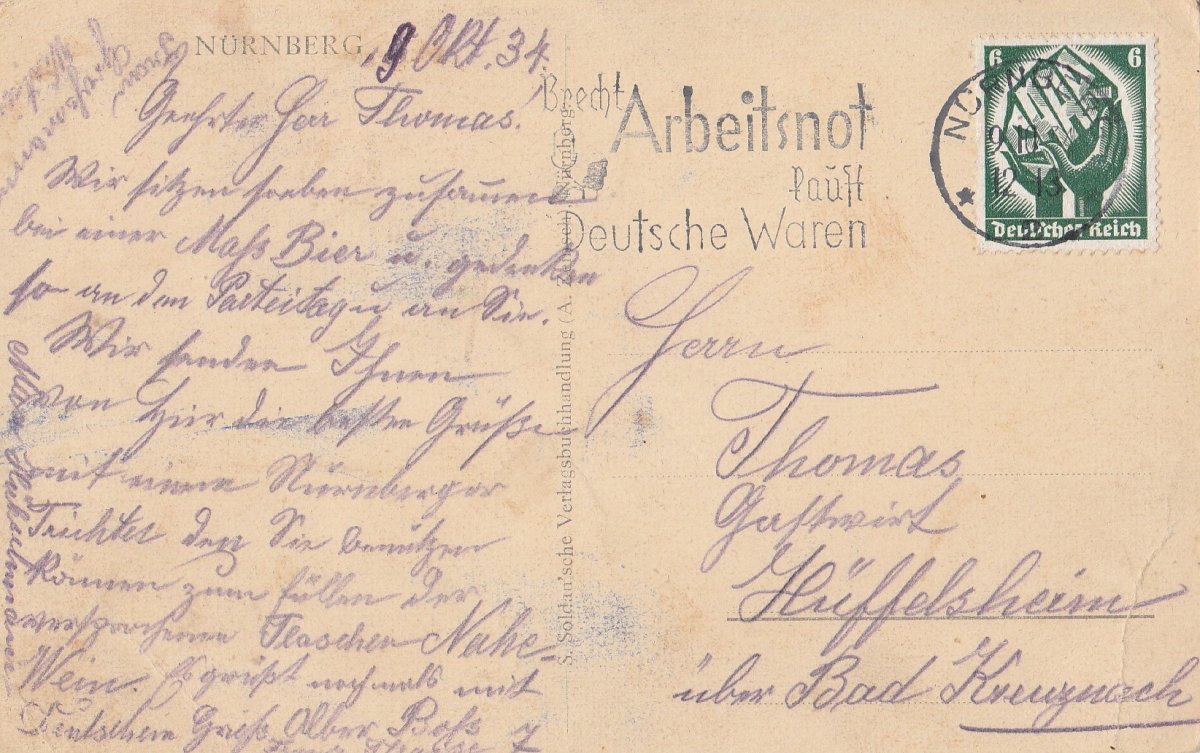 NÜRNBERG, 9 Okt. 34.
Geehrter Herr Thomas!
Wir sitzen soeben zusammen
bei einer Mass Bier u. gedenken
so an den Parteitag u an Sie.
Wir senden Ihnen
von hier die besten Grüße
mit einem Nürnberger
Trichter den Sie benützen
können zum füllen der
versprochenen Flaschen Nahe-
Wein. Es grüßt nochmals mit
Deutschem Gruß
S. Soldan'sche Verlagsbuchhandlung (A. Nürnberg
Brecht
Arbeitsnot
kauft
Deutsche Waren
NÜRNBERG
9.10.
12-13
6 6
Deutsches Reich
Herrn
Thomas
Gastwirt
Hüffelsheim
über Bad Kreuznach